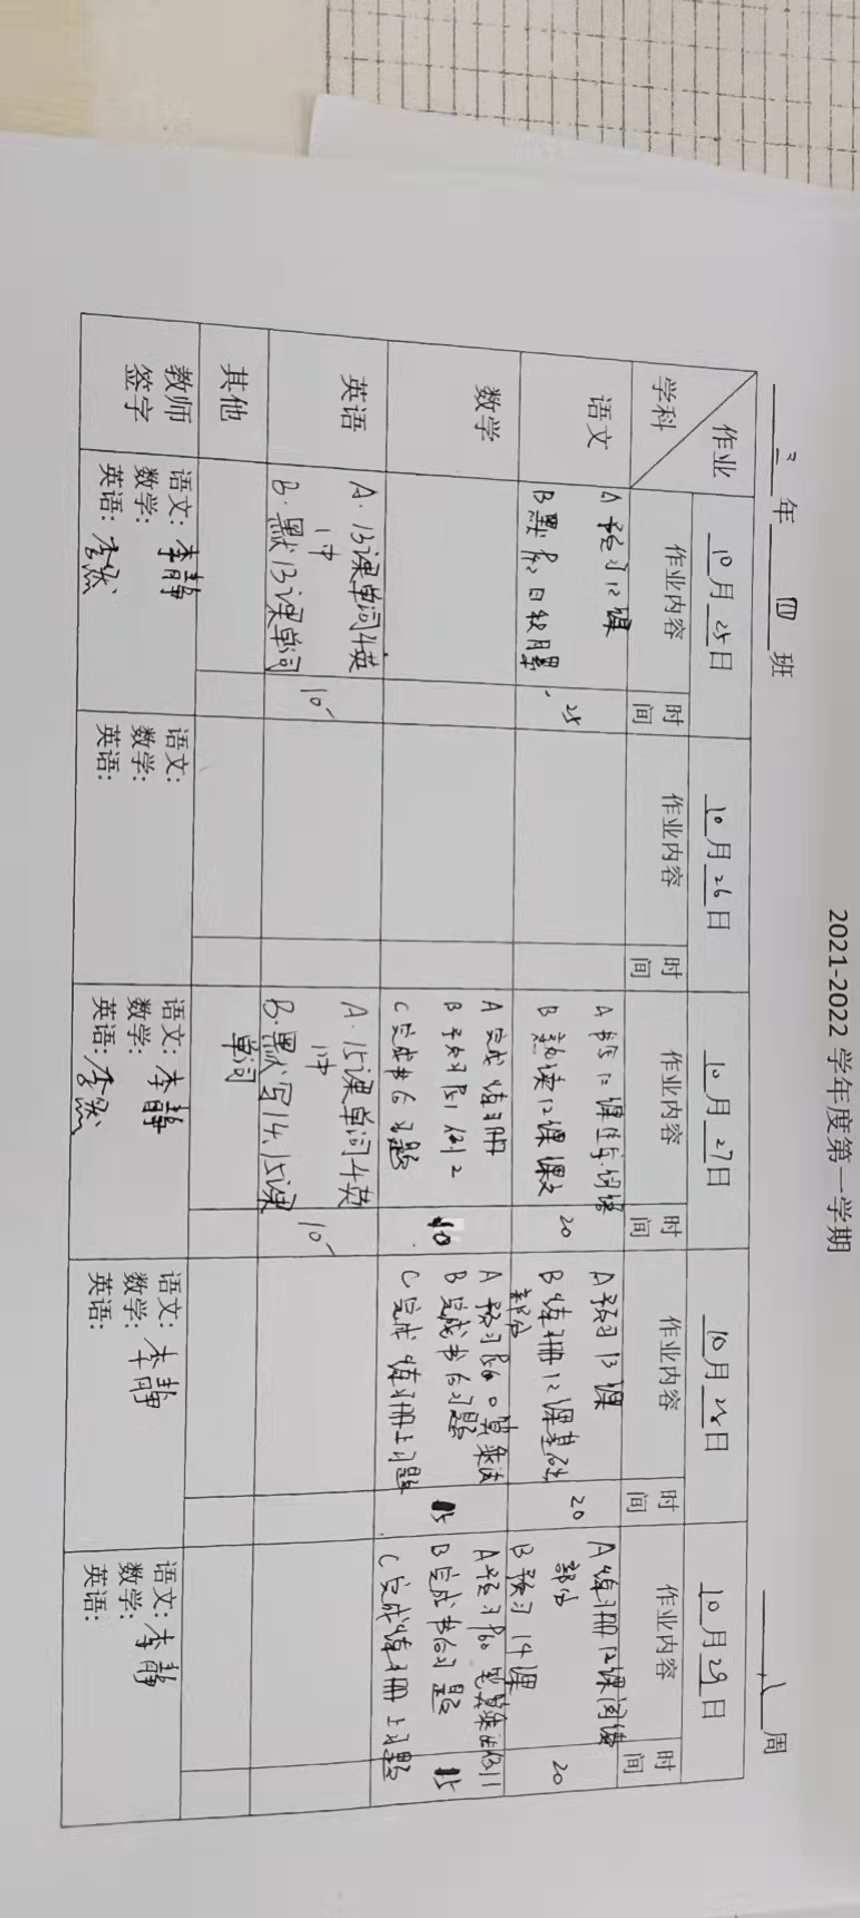 2021-2022 学年度第一学期
三 年 四 班
八 周
作业
学科
10月25日
10月26日
10月27日
10月28日
10月29日
作业内容
时间
作业内容
时间
作业内容
时间
作业内容
时间
作业内容
时间
语文
A 预习12课
B 默 P 日积月累
25
A 书写12课生字
B 熟读12课课文
20
A 预习13课
B 练习册12课基础
部分
20
A 练习册12课阅读
部分
B 预习14课
20
数学
A 完成练习册
B 预习P51例2
C 完成书6习题
10
A 预习P56 0 算乘法
B 完成书6习题
C 完成练习册上习题
15
A 预习P60 笔算乘法例1
B 完成书6习题
C 完成练习册上习题
15
英语
A. 13课单词4英
1中
B. 默13课单词
10'
A. 15课单词4英
1中
B. 默写14.15课
单词
10'
其他
教师
签字
语文: 李静
数学:
英语: 李然
语文:
数学:
英语:
语文: 李静
数学:
英语: 李然
语文: 李静
数学:
英语:
语文: 李静
数学:
英语: